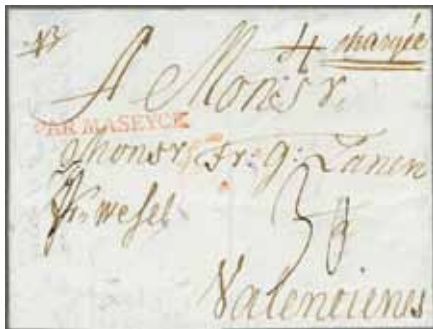 4 chargée
A Monsr.
PAR MASEYCK
Monsr Fr: G: Lanen
Wesel
Valencienes